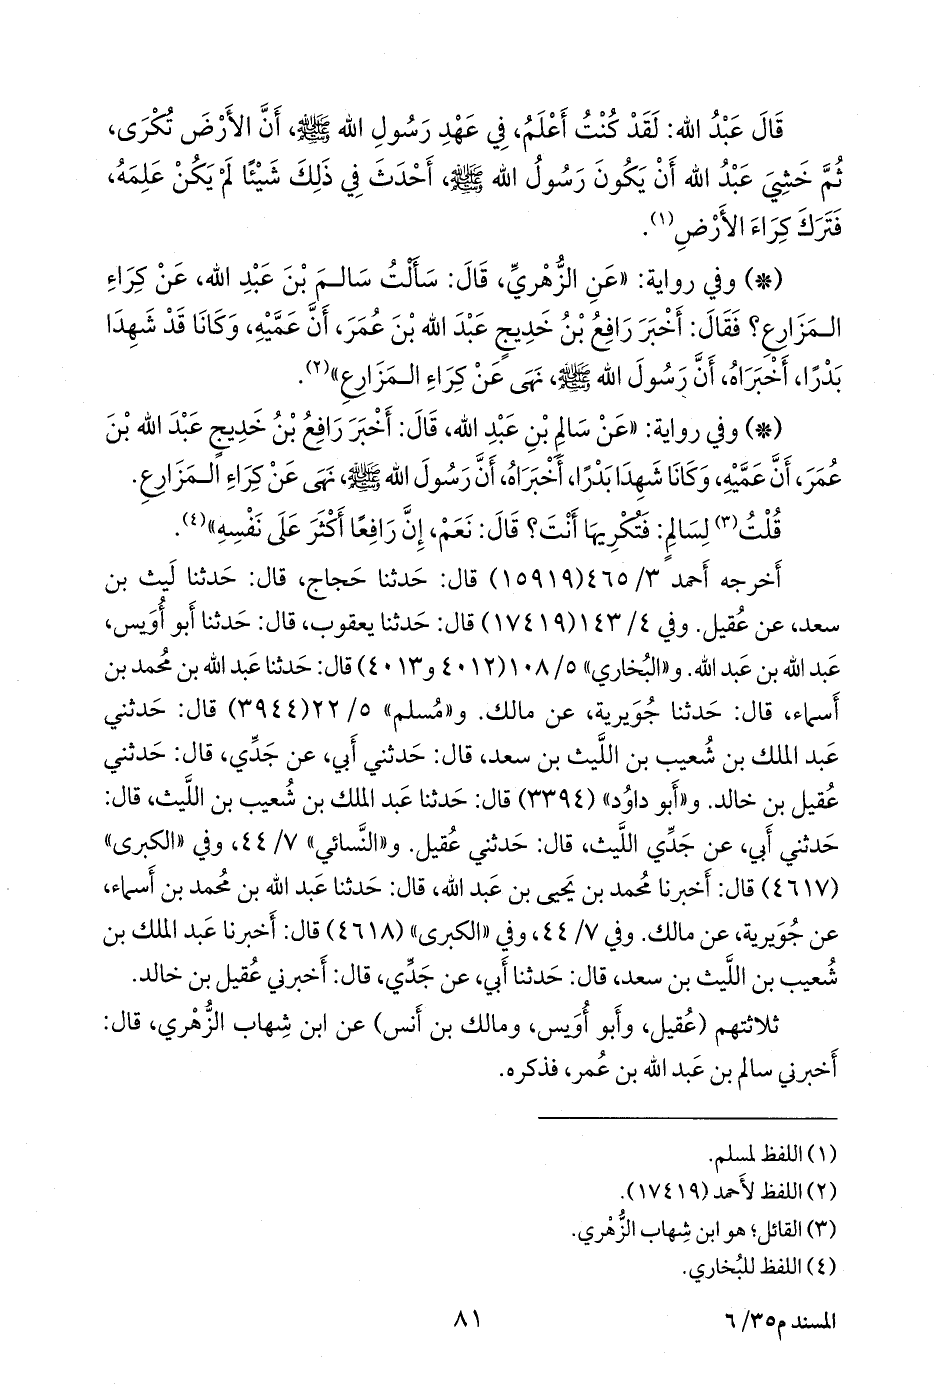 قَالَ عَبْدُ الله: لَقَدْ كُنْتُ أَعْلَمُ، فِي عَهْدِ رَسُولِ الله ﷺ، أَنَّ الأَرْضَ تُكْرَى،
ثُمَّ خَشِيَ عَبْدُ الله أَنْ يَكُونَ رَسُولُ الله ﷺ، أَحْدَثَ فِي ذَلِكَ شَيْئًا لَمْ يَكُنْ عَلِمَهُ،
فَتَرَكَ كِرَاءَ الأَرْضِ(١).
(*) وفي رواية: «عَنِ الزُّهْرِيِّ، قَالَ: سَأَلْتُ سَالِـمَ بْنَ عَبْدِ الله، عَنْ كِرَاءِ
الـمَزَارِعِ؟ فَقَالَ: أَخْبَرَ رَافِعُ بْنُ خَدِيجٍ عَبْدَ الله بْنَ عُمَرَ، أَنَّ عَمَّيْهِ، وَكَانَا قَدْ شَهِدَا
بَدْرًا، أَخْبَرَاهُ، أَنَّ رَسُولَ الله ﷺ، نَهَى عَنْ كِرَاءِ الـمَزَارِعِ»(٢).
(*) وفي رواية: «عَنْ سَالِمِ بْنِ عَبْدِ الله، قَالَ: أَخْبَرَ رَافِعُ بْنُ خَدِيجٍ عَبْدَ الله بْنَ
عُمَرَ، أَنَّ عَمَّيْهِ، وَكَانَا شَهِدَا بَدْرًا، أَخْبَرَاهُ، أَنَّ رَسُولَ الله ﷺ، نَهَى عَنْ كِرَاءِ الـمَزَارِعِ.
قُلْتُ(٣) لِسَالِمٍ: فَتُكْرِيهَا أَنْتَ؟ قَالَ: نَعَمْ، إِنَّ رَافِعًا أَكْثَرَ عَلَى نَفْسِهِ»(٤).
أَخرجه أَحمد ٣/ ٤٦٥(١٥٩١٩) قال: حَدثنا حَجاج، قال: حَدثنا لَيث بن
سعد، عن عُقيل. وفي ٤/ ١٤٣(١٧٤١٩) قال: حَدثنا يعقوب، قال: حَدثنا أَبو أُوَيس،
عَبد الله بن عَبد الله. و«البُخاري» ٥/ ١٠٨(٤٠١٢ و٤٠١٣) قال: حَدثنا عَبد الله بن مُحمد بن
أَسماء، قال: حَدثنا جُوَيرية، عن مالك. و«مُسلم» ٥/ ٢٢(٣٩٤٤) قال: حَدثني
عَبد الملك بن شُعيب بن اللَّيث بن سعد، قال: حَدثني أَبي، عن جَدِّي، قال: حَدثني
عُقيل بن خالد. و«أَبو داوُد» (٣٣٩٤) قال: حَدثنا عَبد الملك بن شُعيب بن اللَّيث، قال:
حَدثني أَبي، عن جَدِّي اللَّيث، قال: حَدثني عُقيل. و«النَّسائي» ٧/ ٤٤، وفي «الكبرى»
(٤٦١٧) قال: أَخبرنا مُحمد بن يَحيى بن عَبد الله، قال: حَدثنا عَبد الله بن مُحمد بن أَسماء،
عن جُوَيرية، عن مالك. وفي ٧/ ٤٤، وفي «الكبرى» (٤٦١٨) قال: أَخبرنا عَبد الملك بن
شُعيب بن اللَّيث بن سعد، قال: حَدثنا أَبي، عن جَدِّي، قال: أَخبرني عُقيل بن خالد.
ثلاثتهم (عُقيل، وأَبو أُوَيس، ومالك بن أَنس) عن ابن شِهاب الزُّهْري، قال:
أَخبرني سالم بن عَبد الله بن عُمر، فذكره.
(١) اللفظ لمسلم.
(٢) اللفظ لأَحمد (١٧٤١٩).
(٣) القائل؛ هو ابن شِهاب الزُّهْري.
(٤) اللفظ للبُخاري.
المسند م٣٥/ ٦
٨١